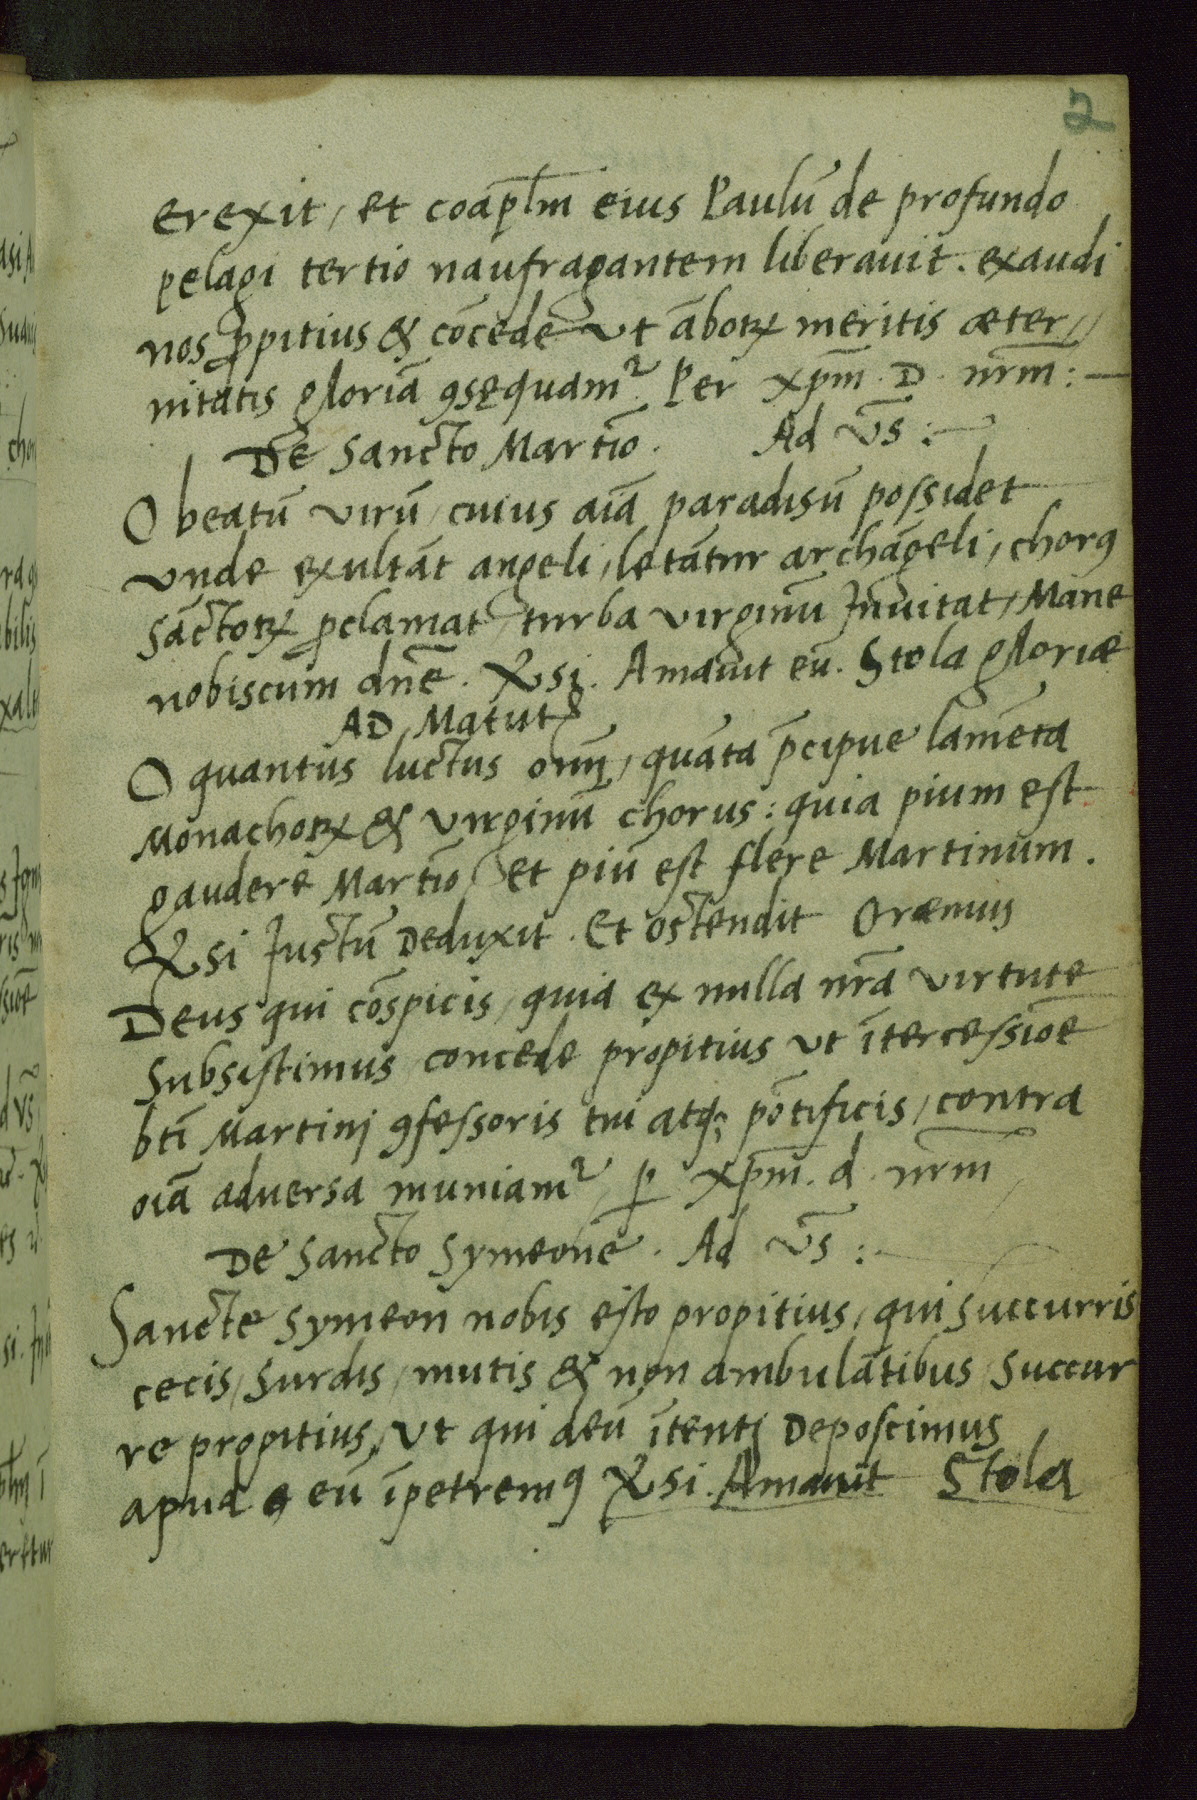 2
erexit, et coap̃lm eius Paulũ de profundo
pelagi tertio naufragantem liberauit. exaudi
nos ꝓpitius & cõcede vt ãboꝝ meritis æter//
nitatis gloriã ꝯsequam᷑ Per xp̃m. D. nr̃m:
De Sancto Martĩo. Ad Vs̃:
O beatũ virũ, cuius aĩa paradisũ possidet
vnde exultãt angeli, letãtur archãgeli, chorꝰ
Sãctoꝝ ꝓclamat, turba virginũ Inuitat, Mane
nobiscum dñe. ℟si. Amauit eũ. Stola gloriæ
AD Matut
O quantus luctus oĩuȝ, quãta p̃cipue lamẽta
Monachoꝝ & virginũ chorus: quia pium est
gaudere Martĩo, et piũ est flere Martinum.
℟si Justũ Deduxit. Et ostendit Oræmus
Deus qui cõspicis, quia ex nulla nr̃a virtute
Subsistimus concede propitius vt ĩtercessiõe
bt̃i Martinj ꝯfessoris tui atqȝ põtificis, contra
oĩa aduersa muniam᷑, ꝑ xp̃m. d. nr̃m
De Sancto Symeone. Ad Vs̃:
Sancte Symeon nobis esto propitius, qui Succurris
cecis, Surdis, mutis & non ambulãtibus Succur
re propitius, Vt qui deũ ĩtentj Deposcimus
apud eũ ĩpetremꝰ ℟si. Amauit Stola